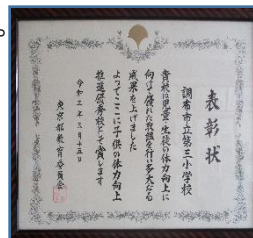 表彰状
調布市立第三小学校
貴校は児童・生徒の体力向上に
向けて優れた取組を行い多大なる
成果を上げました
よってここに子供の体力向上
推進優秀校として賞します
令和三年三月十五日
東京都教育委員会